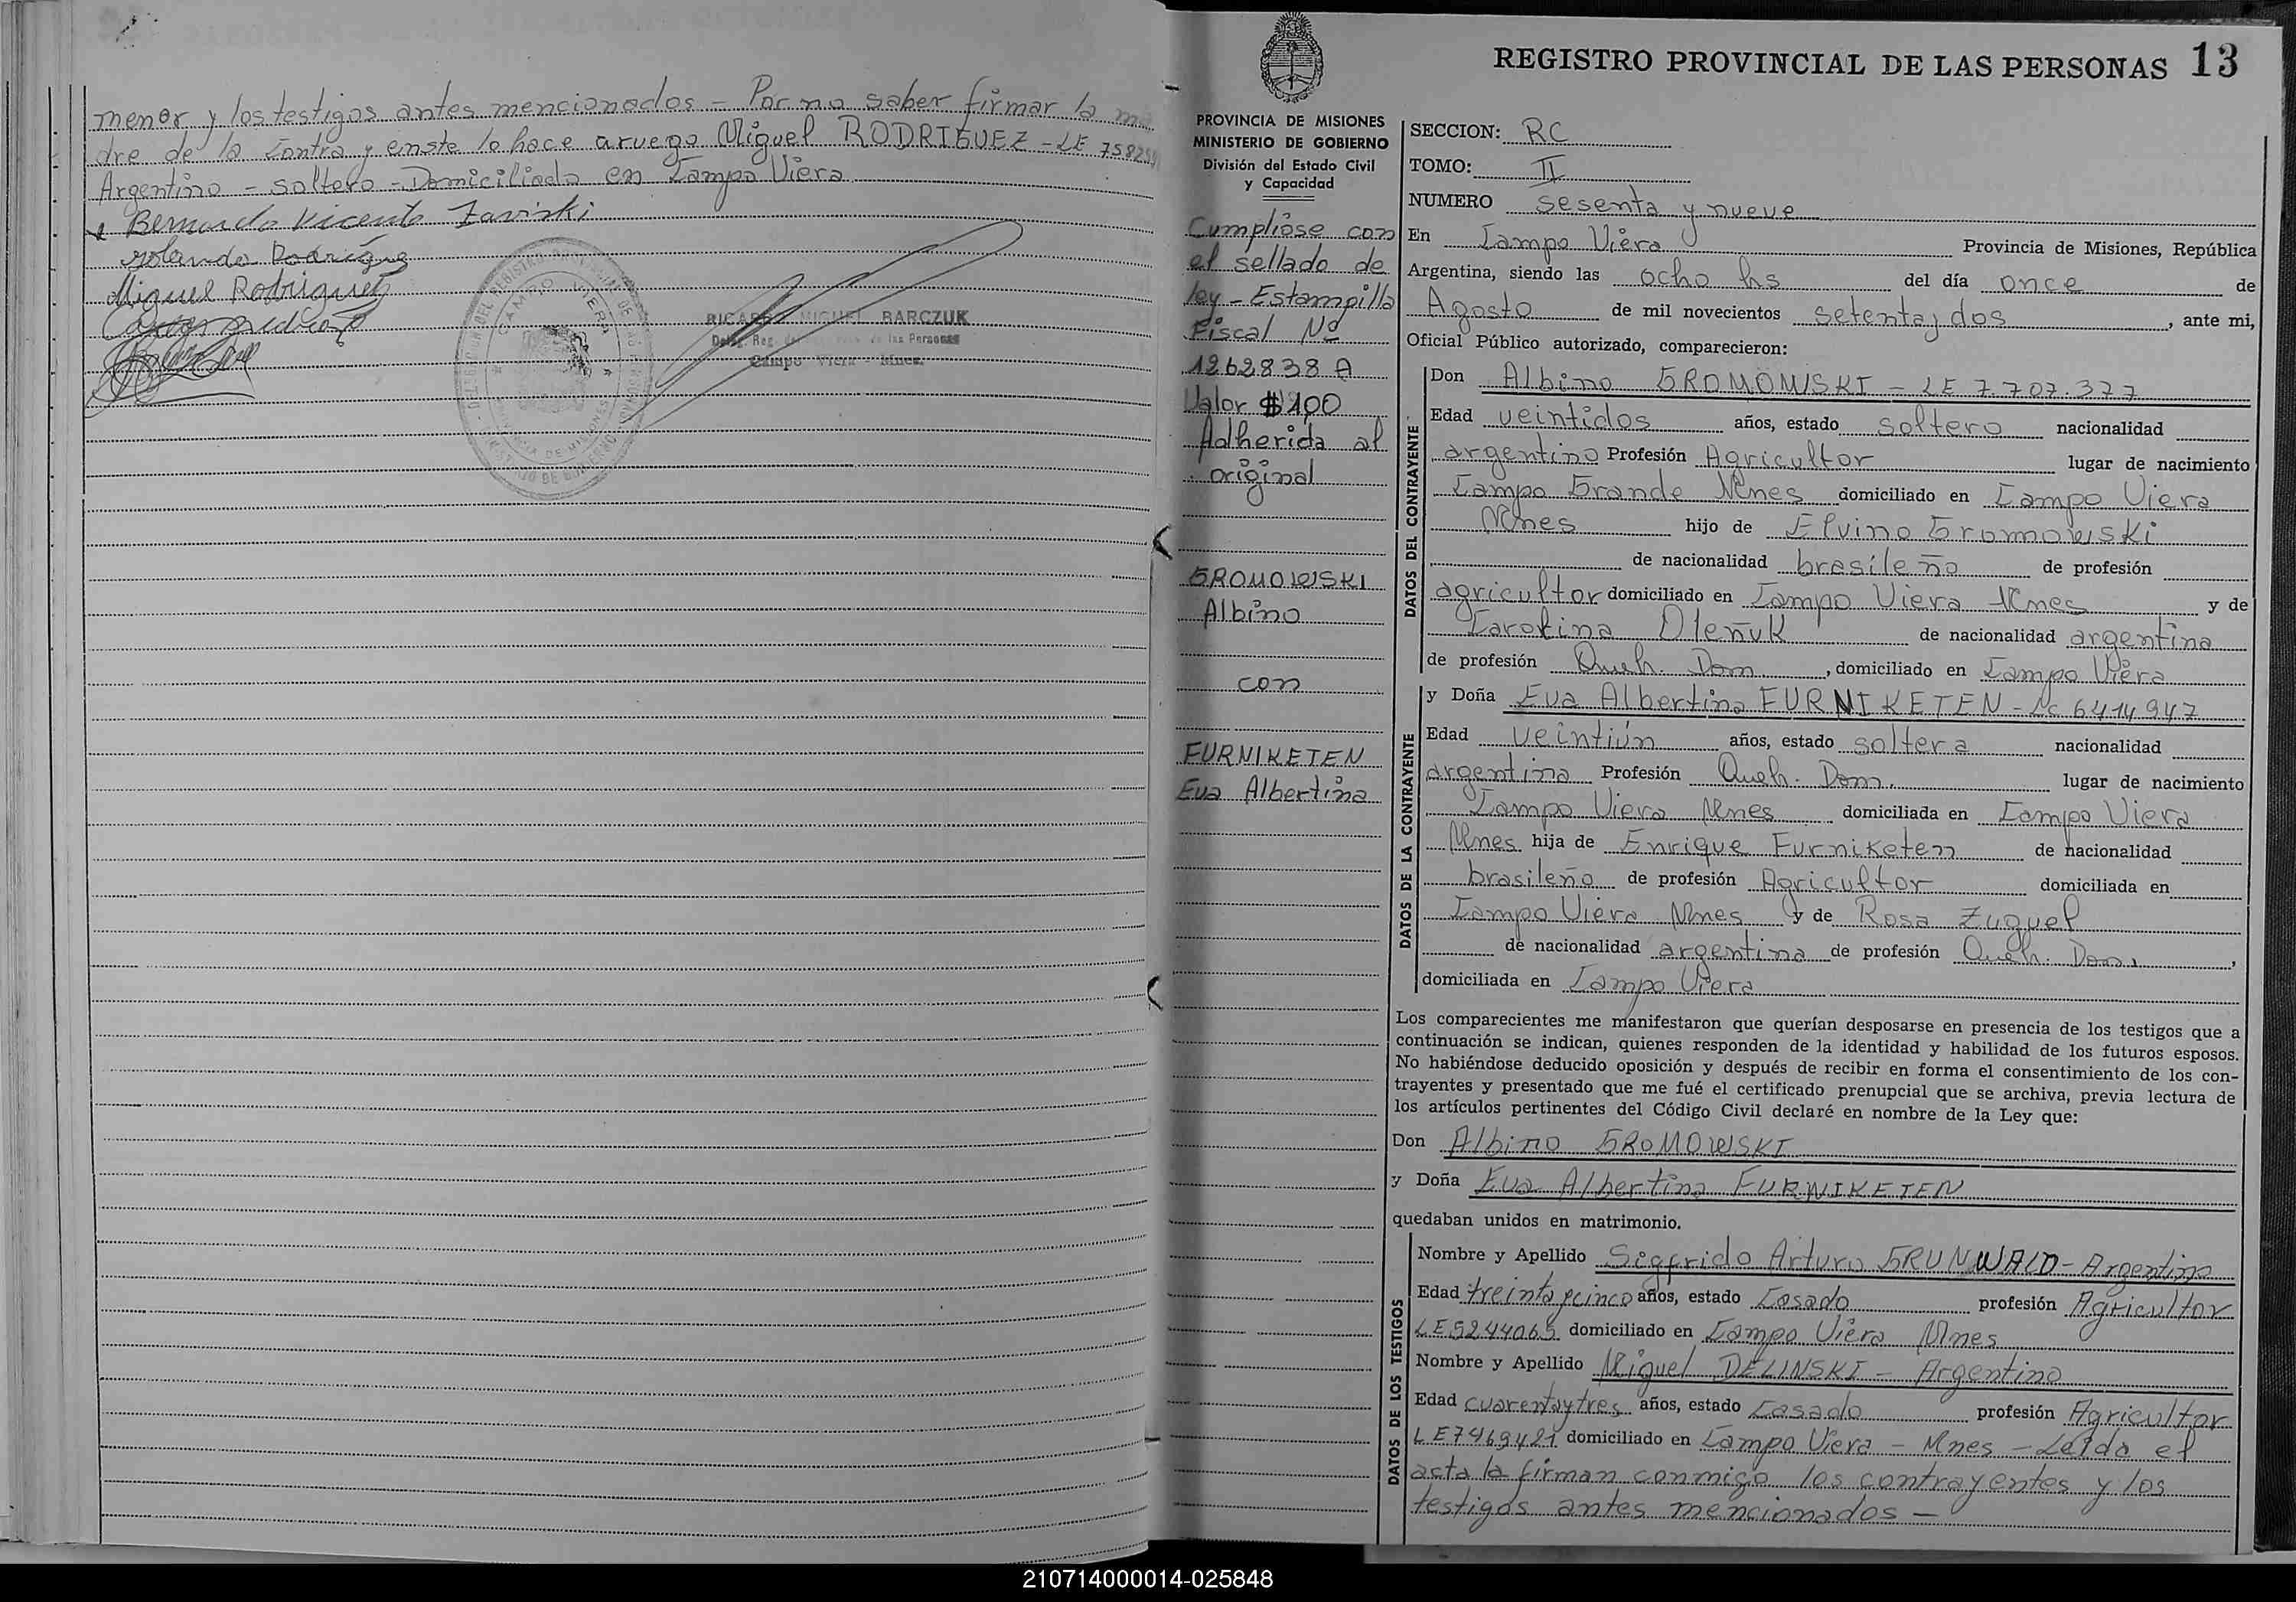 menor y los testigos antes mencionados - Por no saber firmar la ma
dre de la contrayeinste lo hace a ruego Miguel RODRIGUEZ - LE 75825
Argentino - soltero - Domiciliado en Campo Viera
Bernardo Vicente Zaviski
Rolando Rodriguez
Miguel Rodriguez
CAMPO VIERA
RICARDO MIGUEL BARCZUK
Deleg. Reg. de las Personas
Campo Viera - Mnes.
REGISTRO PROVINCIAL DE LAS PERSONAS 13
PROVINCIA DE MISIONES
MINISTERIO DE GOBIERNO
División del Estado Civil
y Capacidad
Cumplióse con
el sellado de
ley - Estampilla
Fiscal Nº
1262838 A
Valor $ 1,00
Adherida al
original
GROMOWSKI
Albino
con
FURNIKETEN
Eva Albertina
SECCION: RC
TOMO: II
NUMERO sesenta y nueve
En Campo Viera Provincia de Misiones, República
Argentina, siendo las ocho hs del día once de
Agosto de mil novecientos setenta y dos, ante mi,
Oficial Público autorizado, comparecieron:
DATOS DEL CONTRAYENTE
Don Albino GROMOWSKI - LE 7.707.377
Edad veintidos años, estado soltero nacionalidad
argentino Profesión Agricultor lugar de nacimiento
Campo Grande Mnes domiciliado en Campo Viera
Mnes hijo de Elvino Gromowski
de nacionalidad brasileño de profesión
agricultor domiciliado en Campo Viera Mnes y de
Carolina Oleñuk de nacionalidad argentina
de profesión Queh. Dom., domiciliado en Campo Viera
DATOS DE LA CONTRAYENTE
y Doña Eva Albertina FURNIKETEN - LC 6414947
Edad veintiún años, estado soltera nacionalidad
argentina Profesión Queh. Dom. lugar de nacimiento
Campo Viera Mnes domiciliada en Campo Viera
Mnes hija de Enrique Furniketen de nacionalidad
brasileño de profesión Agricultor domiciliada en
Campo Viera Mnes y de Rosa Zuquel
de nacionalidad argentina de profesión Queh. Dom.,
domiciliada en Campo Viera
Los comparecientes me manifestaron que querían desposarse en presencia de los testigos que a
continuación se indican, quienes responden de la identidad y habilidad de los futuros esposos.
No habiéndose deducido oposición y después de recibir en forma el consentimiento de los con-
trayentes y presentado que me fué el certificado prenupcial que se archiva, previa lectura de
los artículos pertinentes del Código Civil declaré en nombre de la Ley que:
Don Albino GROMOWSKI
y Doña Eva Albertina FURNIKETEN
quedaban unidos en matrimonio.
DATOS DE LOS TESTIGOS
Nombre y Apellido Sigfrido Arturo GRUNWALD - Argentino
Edad treinta y cinco años, estado Casado profesión Agricultor
LE 5244065 domiciliado en Campo Viera Mnes
Nombre y Apellido Miguel DELINSKI - Argentino
Edad cuarenta y tres años, estado Casado profesión Agricultor
LE 7469421 domiciliado en Campo Viera - Mnes - Leída el
acta la firman conmigo los contrayentes y los
testigos antes mencionados -
210714000014-025848